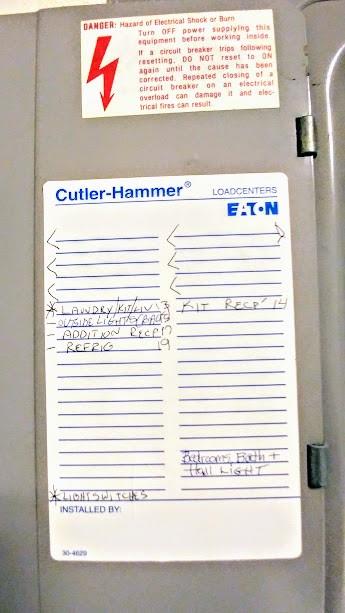 DANGER: Hazard of Electrical Shock or Burn
Turn OFF power supplying this
equipment before working inside.
If a circuit breaker trips following
resetting, DO NOT reset to ON
again until the cause has been
corrected. Repeated closing of a
circuit breaker on an electrical
overload can damage it and elec-
trical fires can result.
Cutler-Hammer® LOADCENTERS
EATON
* LAUNDRY/KIT/LIV 13 KIT RECP' 14
- OUTSIDE LIGHTS/
- ADDITION RECP 17
- REFRIG 19
Bedrooms, Bath +
Hall LIGHT
* LIGHTSWITCHES
INSTALLED BY:
30-4629